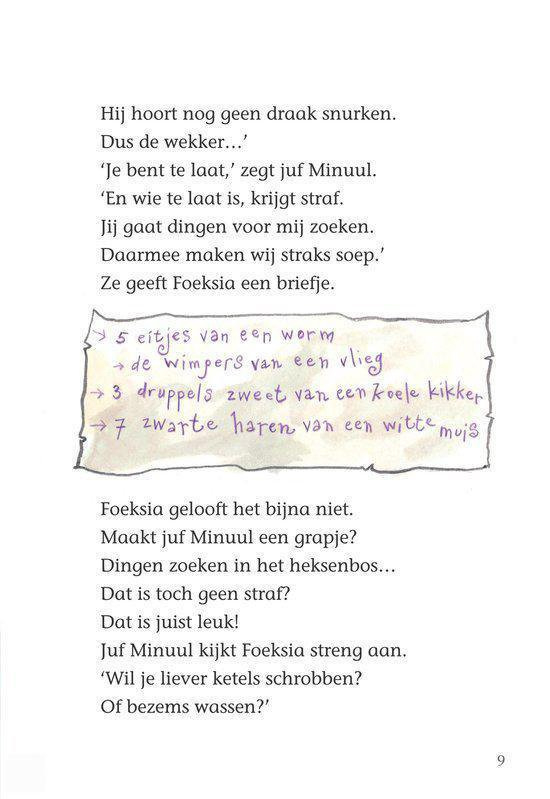 Hij hoort nog geen draak snurken.
Dus de wekker…’
‘Je bent te laat,’ zegt juf Minuul.
‘En wie te laat is, krijgt straf.
Jij gaat dingen voor mij zoeken.
Daarmee maken wij straks soep.’
Ze geeft Foeksia een briefje.
→ 5 eitjes van een worm
→ de wimpers van een vlieg
→ 3 druppels zweet van een koele kikker
→ 7 zwarte haren van een witte muis
Foeksia gelooft het bijna niet.
Maakt juf Minuul een grapje?
Dingen zoeken in het heksenbos…
Dat is toch geen straf?
Dat is juist leuk!
Juf Minuul kijkt Foeksia streng aan.
‘Wil je liever ketels schrobben?
Of bezems wassen?’
9